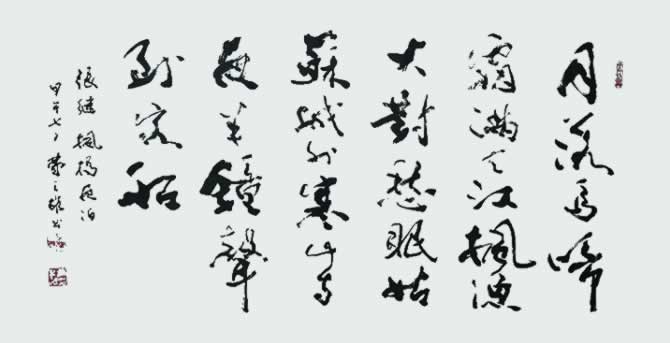 月落烏啼
霜滿天江楓漁
火對愁眠姑
蘇城外寒山寺
夜半鐘聲
到客船
張繼 楓橋夜泊
甲午七